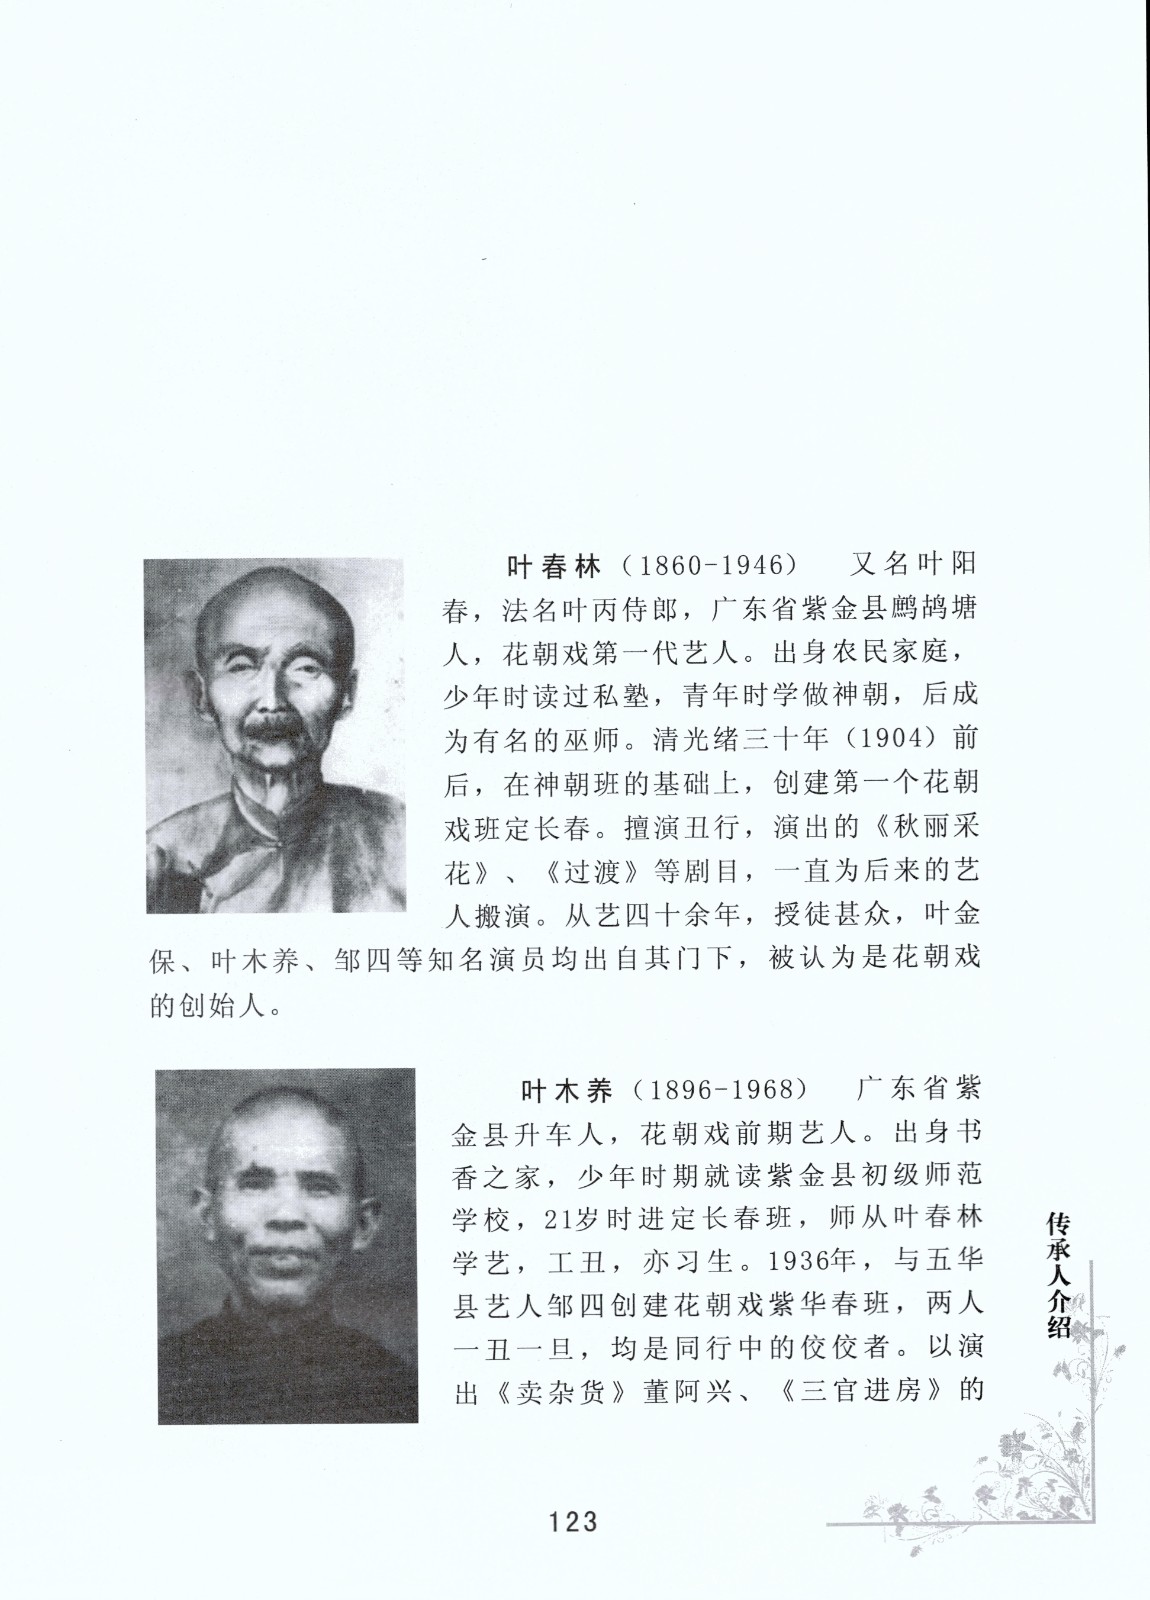 叶春林（1860-1946） 又名叶阳
春，法名叶丙侍郎，广东省紫金县鹧鸪塘
人，花朝戏第一代艺人。出身农民家庭，
少年时读过私塾，青年时学做神朝，后成
为有名的巫师。清光绪三十年（1904）前
后，在神朝班的基础上，创建第一个花朝
戏班定长春。擅演丑行，演出的《秋丽采
花》、《过渡》等剧目，一直为后来的艺
人搬演。从艺四十余年，授徒甚众，叶金
保、叶木养、邹四等知名演员均出自其门下，被认为是花朝戏
的创始人。
叶木养（1896-1968） 广东省紫
金县升车人，花朝戏前期艺人。出身书
香之家，少年时期就读紫金县初级师范
学校，21岁时进定长春班，师从叶春林
学艺，工丑，亦习生。1936年，与五华
县艺人邹四创建花朝戏紫华春班，两人
一丑一旦，均是同行中的佼佼者。以演
出《卖杂货》董阿兴、《三官进房》的
传承人介绍
123